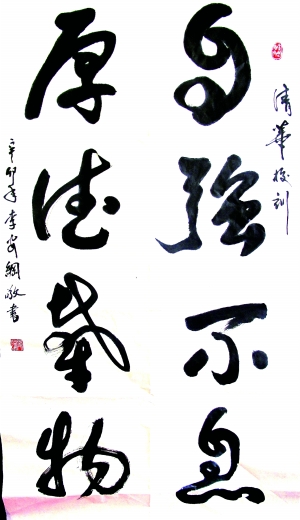 清華校训
自强不息
厚德载物
辛卯年李安纲敬书